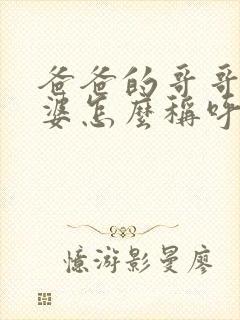 爸爸的哥哥
婆怎麼稱呼
憶游影曼廖